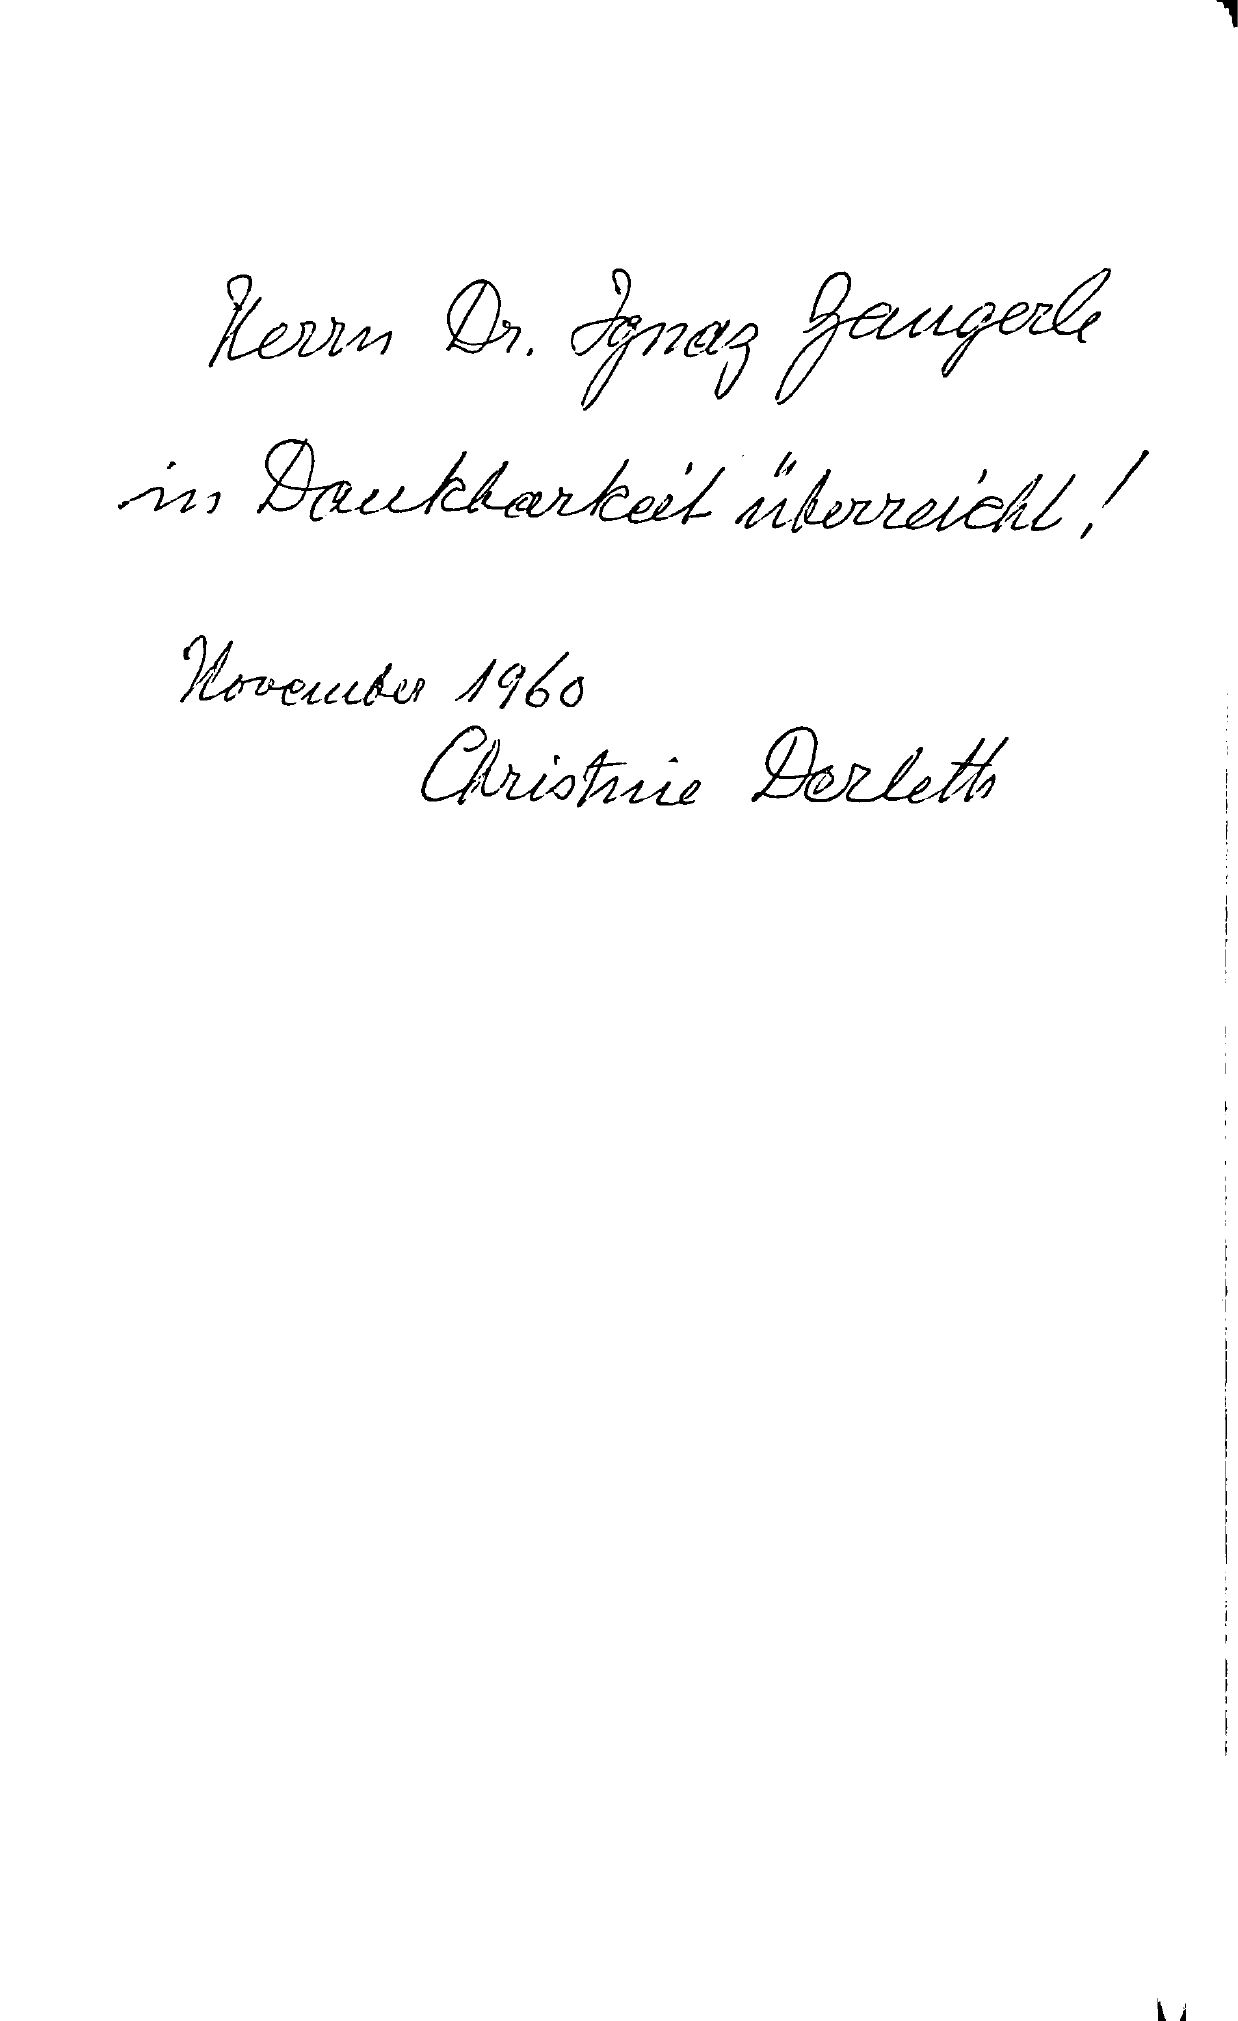 Herrn Dr. Ignaz Zangerle
in Dankbarkeit überreicht!
November 1960
Christine Derleth